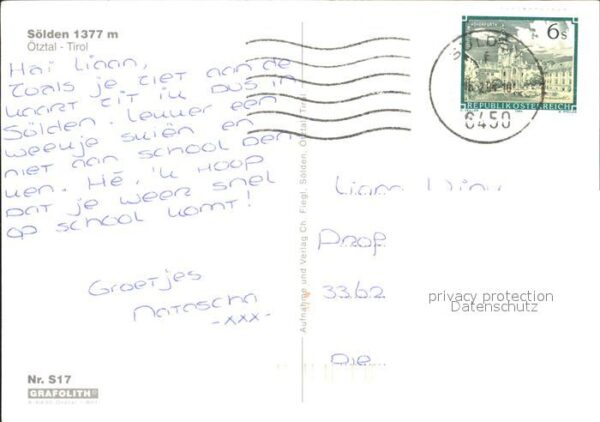 Sölden 1377 m
Ötztal - Tirol
Hai Liaan,
zoals je ziet aan de
kaart zit ik dus in
Sölden. Lekker een
weekje skiën en
niet aan school den
ken. Hé, 'k hoop
dat je weer snel
op school komt!
Groetjes
Natascha
-xxx-
Nr. S17
GRAFOLITH
Aufnahme und Verlag Ch. Fiegl, Sölden, Ötztal, Tirol
6s
REPUBLIK ÖSTERREICH
6450
Liaan
Prof
3362
privacy protection
Datenschutz